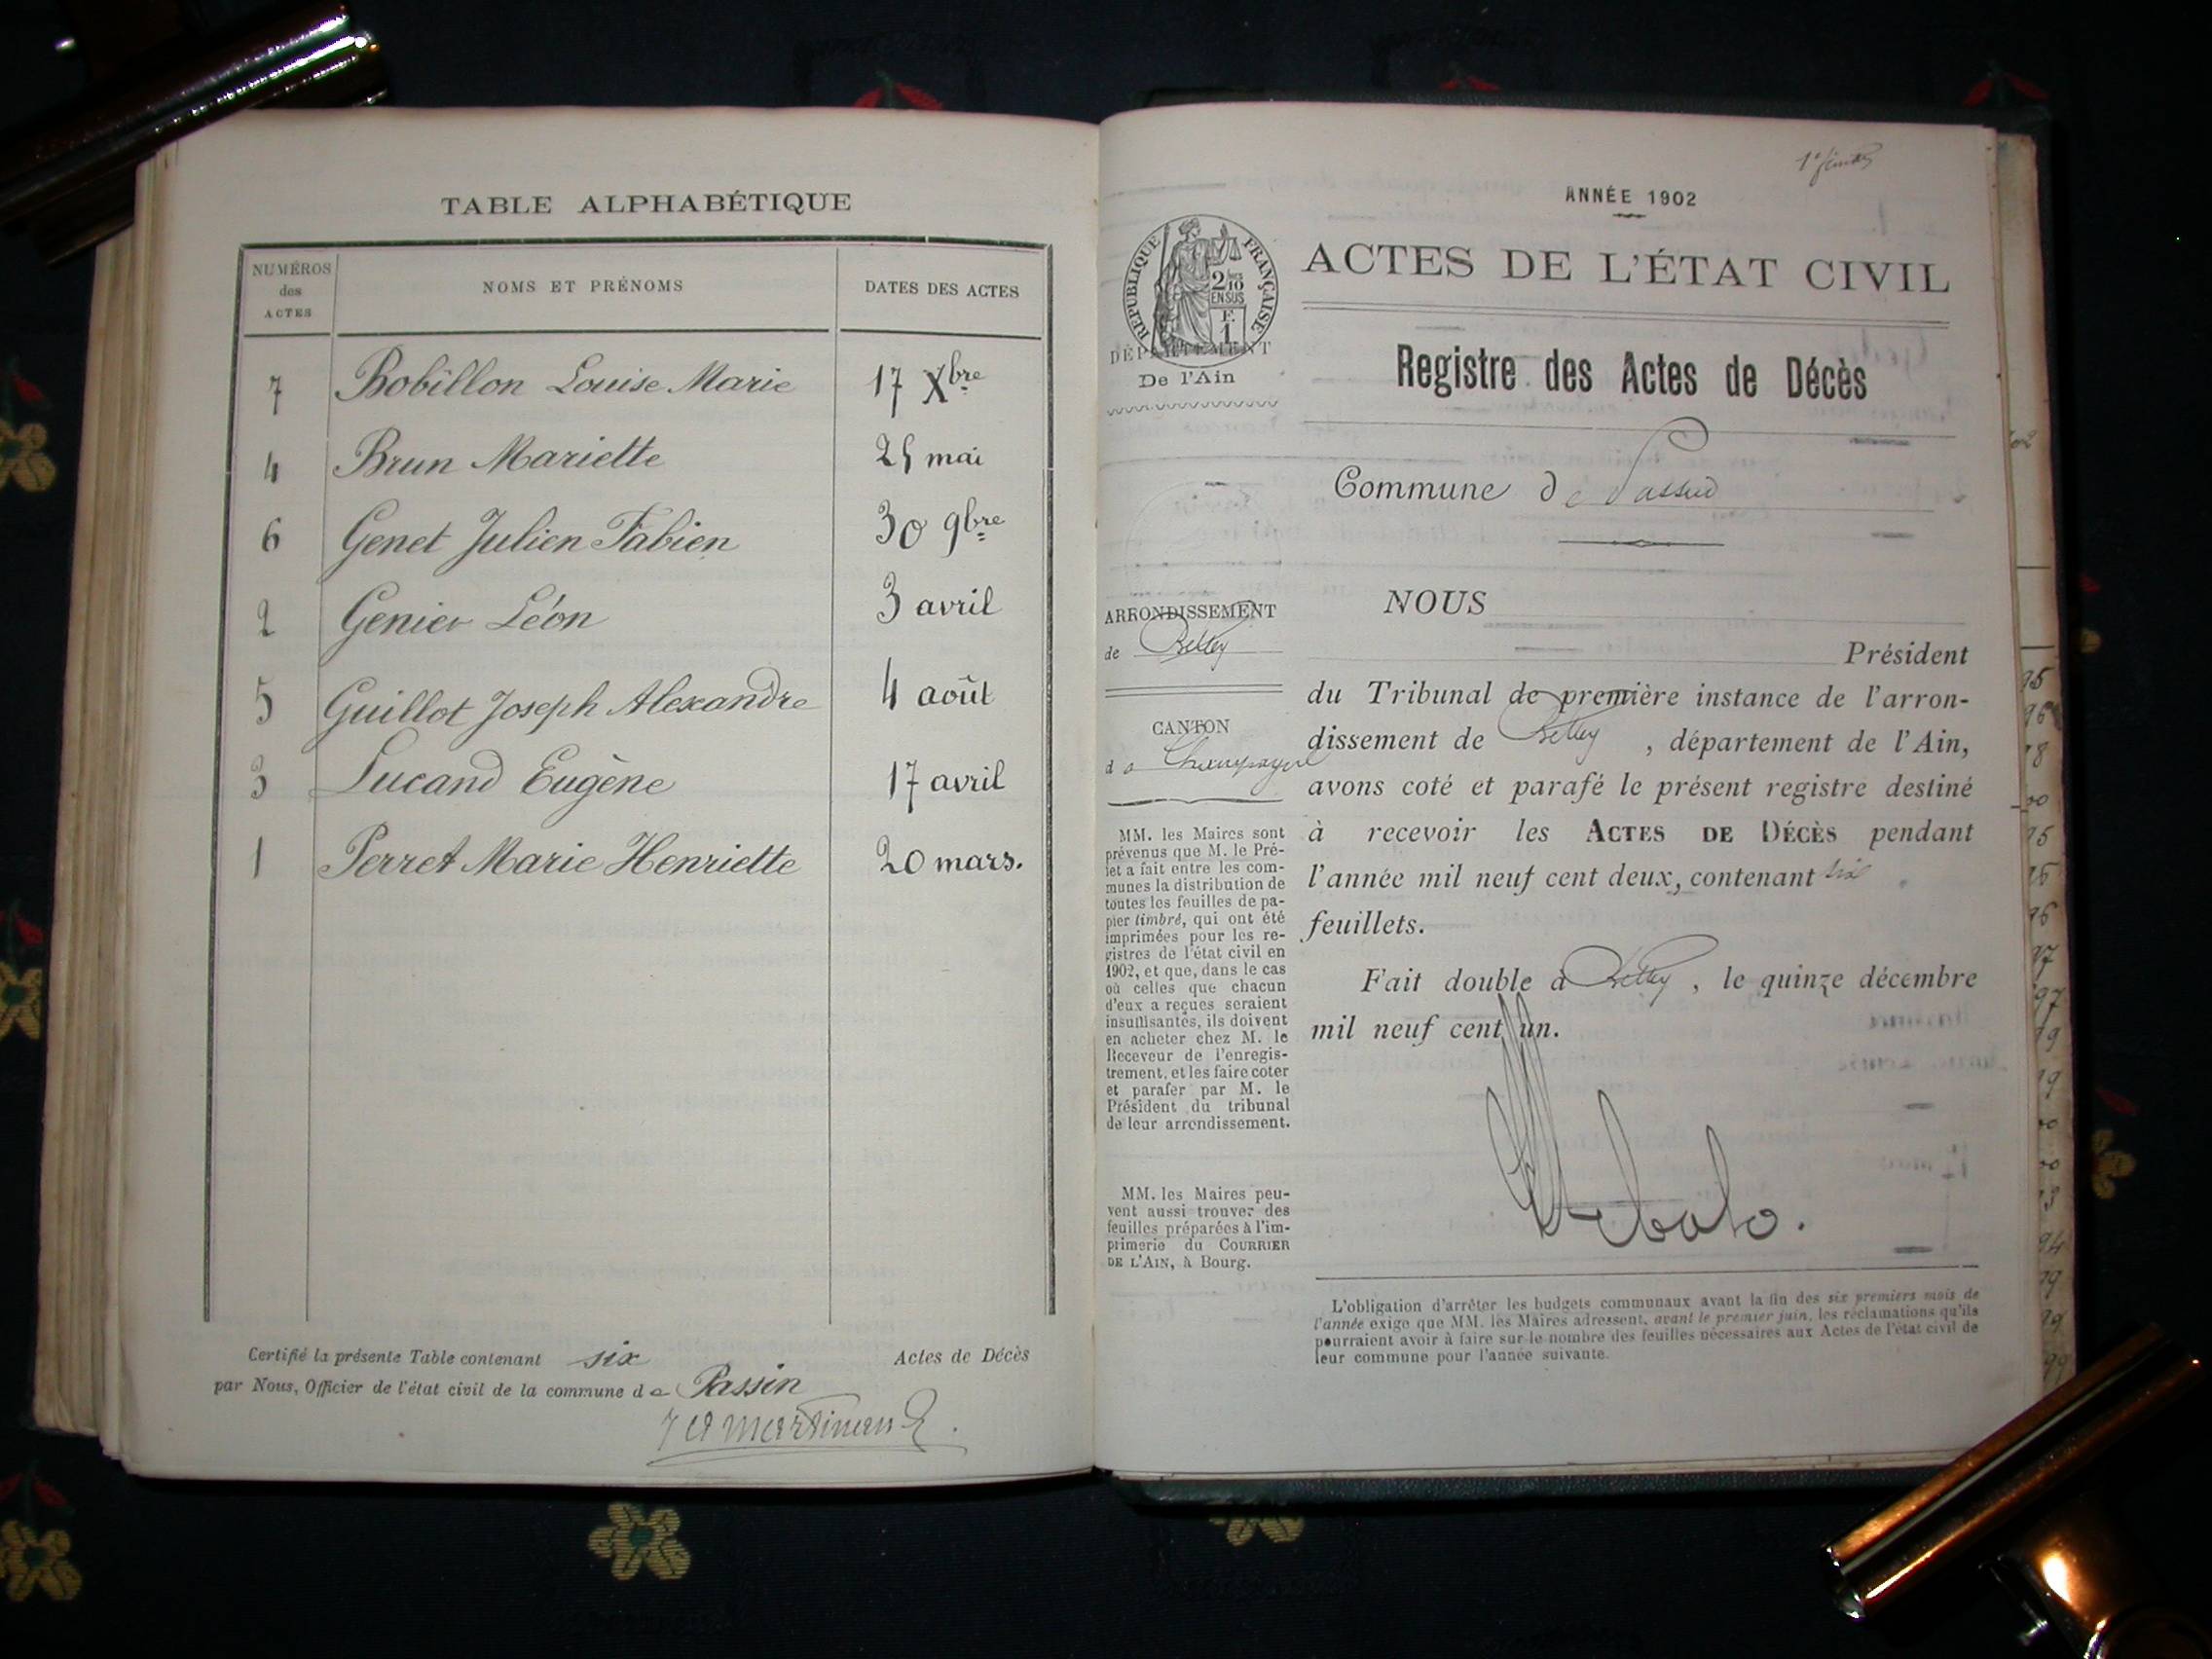 TABLE ALPHABÉTIQUE
NUMÉROS des ACTES NOMS ET PRÉNOMS DATES DES ACTES
7 Bobillon Louise Marie 17 Xbre
4 Brun Mariette 25 mai
6 Genet Julien Fabien 30 9bre
2 Genier Léon 3 avril
5 Guillot Joseph Alexandre 4 août
3 Lucand Eugène 17 avril
1 Perret Marie Henriette 20 mars.
Certifié la présente Table contenant six Actes de Décès
par Nous, Officier de l'état civil de la commune de Passin
ANNÉE 1902
RÉPUBLIQUE FRANÇAISE
2/10
EN SUS
F.
1
DÉPARTEMENT
De l'Ain
ARRONDISSEMENT
de Belley
CANTON
de Champagne
MM. les Maires sont
prévenus que M. le Pré-
fet a fait entre les com-
munes la distribution de
toutes les feuilles de pa-
pier timbré, qui ont été
imprimées pour les re-
gistres de l'état civil en
1902, et que, dans le cas
où celles que chacun
d'eux a reçues seraient
insuffisantes, ils doivent
en acheter chez M. le
Receveur de l'enregis-
trement, et les faire coter
et parafer par M. le
Président du tribunal
de leur arrondissement.
MM. les Maires peu-
vent aussi trouver des
feuilles préparées à l'im-
primerie du COURRIER
DE L'AIN, à Bourg.
ACTES DE L'ÉTAT CIVIL
Registre des Actes de Décès
Commune de Passin
NOUS
Président
du Tribunal de première instance de l'arron-
dissement de Belley , département de l'Ain,
avons coté et parafé le présent registre destiné
à recevoir les ACTES DE DÉCÈS pendant
l'année mil neuf cent deux, contenant six
feuillets.
Fait double à Belley , le quinze décembre
mil neuf cent un.
L'obligation d'arrêter les budgets communaux avant la fin des six premiers mois de
l'année exige que MM. les Maires adressent, avant le premier juin, les réclamations qu'ils
pourraient avoir à faire sur le nombre des feuilles nécessaires aux Actes de l'état civil de
leur commune pour l'année suivante.